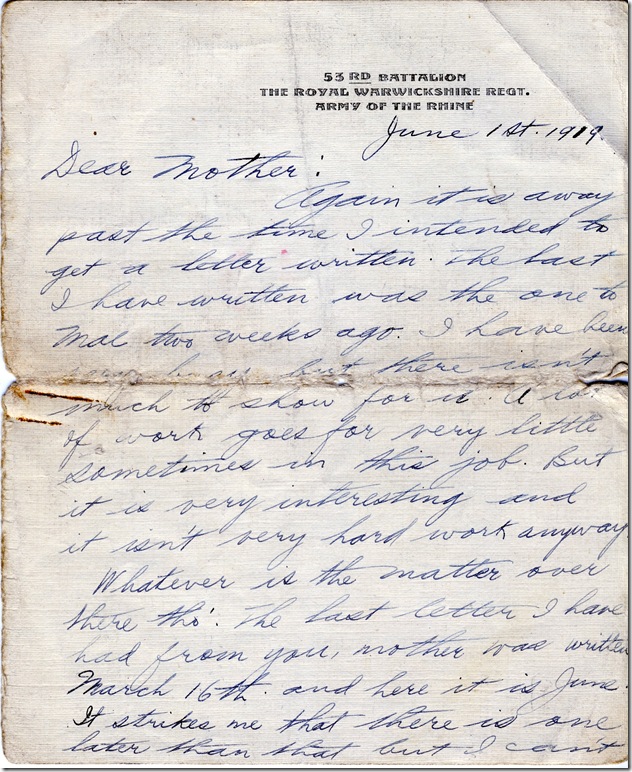 53 RD BATTALION
THE ROYAL WARWICKSHIRE REGT.
ARMY OF THE RHINE
June 1st. 1919.
Dear Mother:
Again it is away
past the time I intended to
get a letter written. The last
I have written was the one to
Mal two weeks ago. I have been
but there isn't
much to show for it. A lot
of work goes for very little
sometimes in this job. But
it is very interesting and
it isn't very hard work anyway
Whatever is the matter over
there tho'. The last letter I have
had from you, mother was written
March 16th. and here it is June.
It strikes me that there is one
later than that but I can't